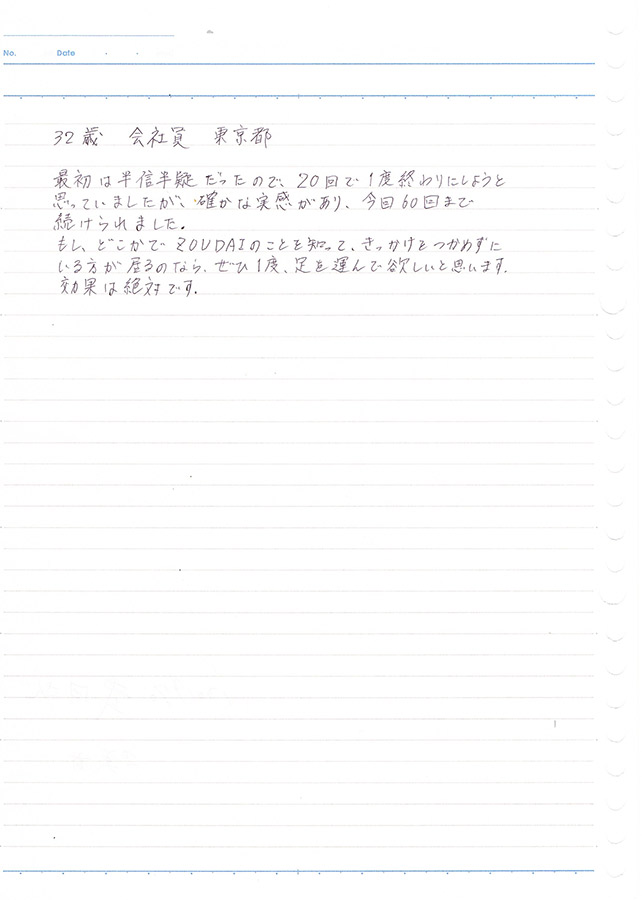 No. Date
32歳 会社員 東京都
最初は半信半疑だったので、20回で1度終わりにしようと
思っていましたが、確かな実感があり、今回60回まで
続けられました。
もし、どこかでZOUDAIのことを知って、きっかけをつかめずに
いる方が居るのなら、ぜひ1度、足を運んで欲しいと思います。
効果は絶対です。